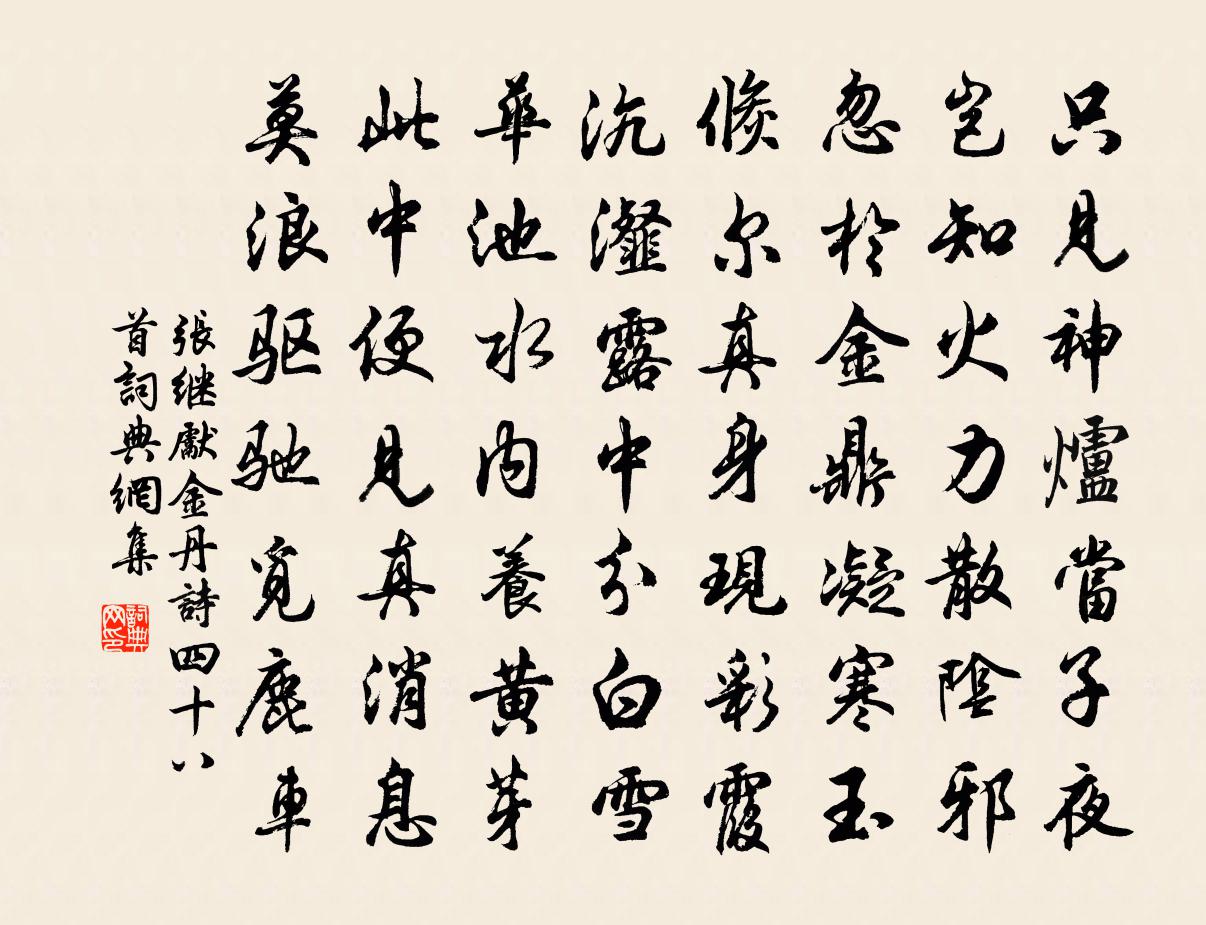 只見神爐當子夜
岂知火力散陰邪
忽於金鼎凝寒玉
倏尔真身現彩霞
沆瀣露中分白雪
華池水内養黃芽
此中便見真消息
莫浪驱驰覓鹿車
張继獻金丹詩四十八
首詞典網集
詞典网印